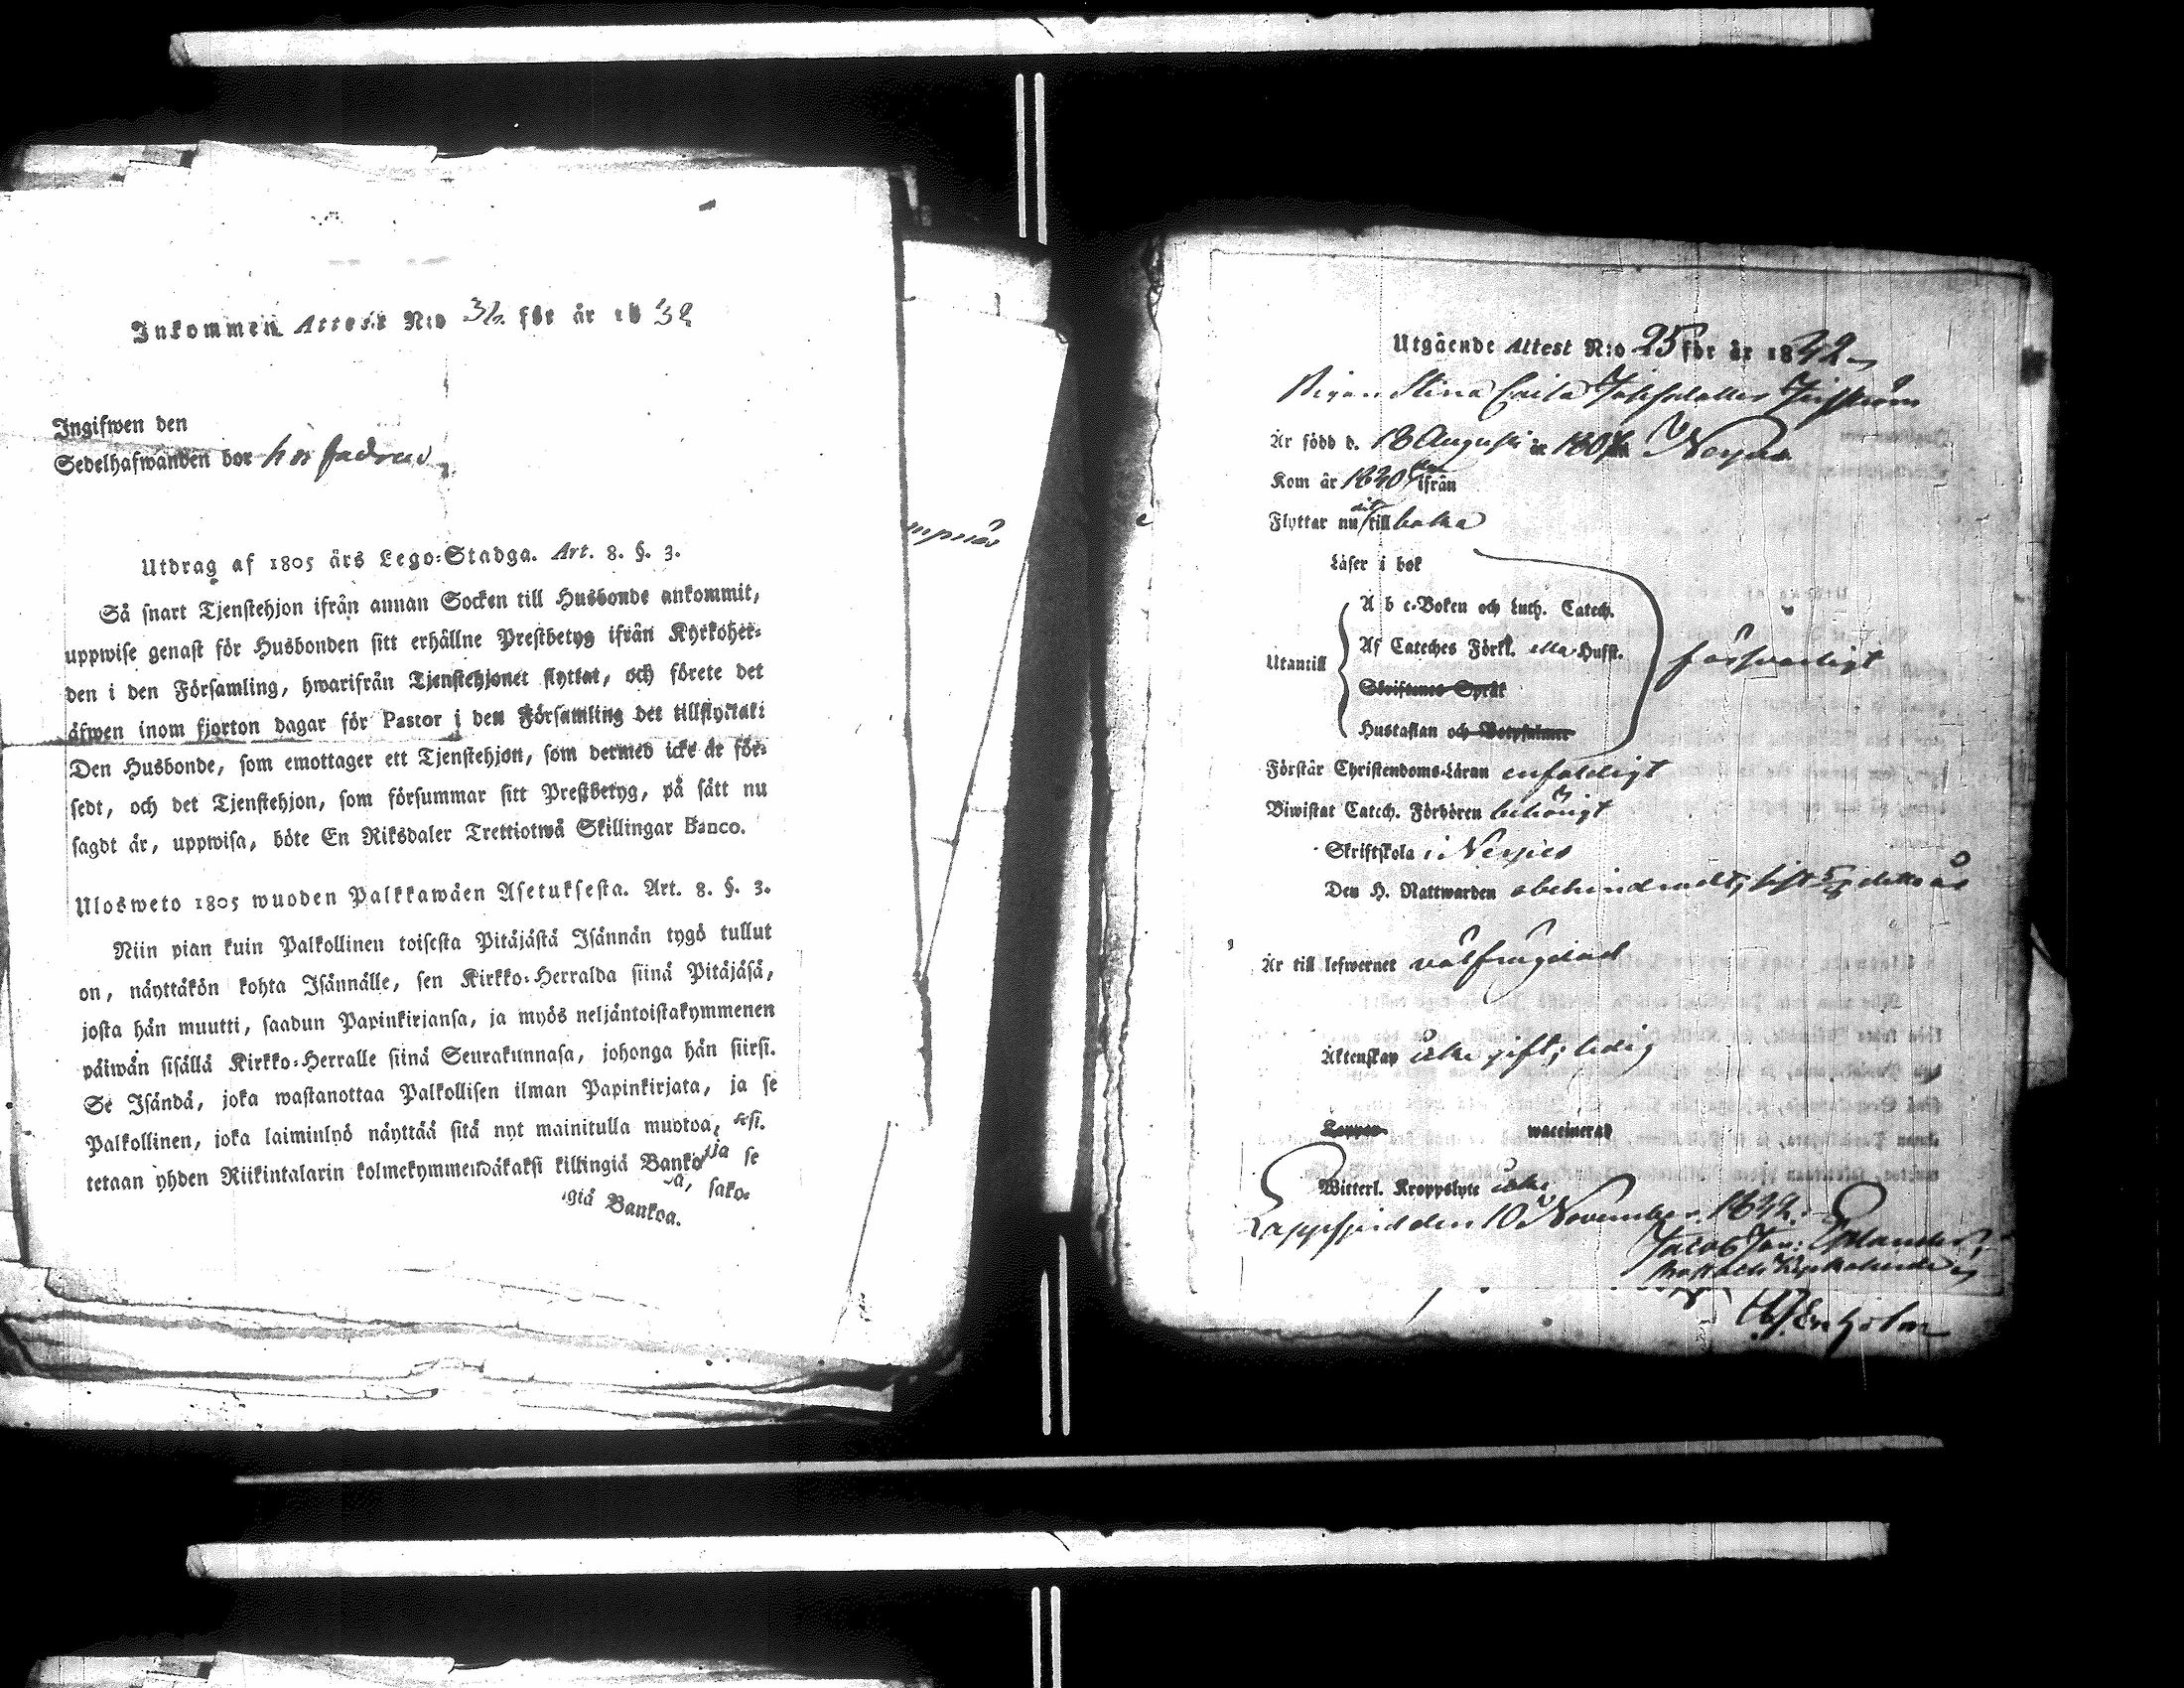 Inkommen Attest N:o 36 för år 18 32
Ingifwen den
Sedelhafwanden bor hos fadren
Utdrag af 1805 års Lego-Stadga. Art. 8. §. 3.
Så snart Tjenstehjon ifrån annan Socken till Husbonde ankommit,
uppwise genast för Husbonden sitt erhållne Prestbetyg ifrån Kyrkoher-
den i den Församling, hwarifrån Tjenstehjonet flyttat, och förete det
äfwen inom fjorton dagar för Pastor i den Församling det tillflyttat:
Den Husbonde, som emottager ett Tjenstehjon, som dermed icke är för-
sedt, och det Tjenstehjon, som försummar sitt Prestbetyg, på sätt nu
sagdt är, uppwisa, böte En Riksdaler Trettiotwå Skillingar Banco.
Ulosweto 1805 wuoden Palkkawäen Asetuksesta. Art. 8. §. 3.
Niin pian kuin Palkollinen toisesta Pitäjästä Isännän tygö tullut
on, näyttäkön kohta Isännälle, sen Kirkko-Herralda siinä Pitäjäsä,
josta hän muutti, saadun Papinkirjansa, ja myös neljäntoistakymmenen
päiwän sisällä Kirkko-Herralle siinä Seurakunnasa, johonga hän siirsi.
Se Isändä, joka wastanottaa Palkollisen ilman Papinkirjata, ja se
Palkollinen, joka laiminlyö näyttää sitä nyt mainitulla muotoa,
tetaan yhden Riikintalarin kolmekymmendäkaksi killingiä Banko se
sako-
giä Bankoa.
mpnäs
Utgående Attest N:o 25 för år 1842
Pigan Stina Caisa
Är född d. 18 Augusti 180 i Nerpes
Kom år 1840 ifrån
Flyttar nu dit till baka
Läser i bok
A b c-Boken och Luth. Catech.
Af Cateches Förkl. Husst.
Utantill
försvarligt
Skriftenes Språk
Hustaflan och Botpsalmer
Förstår Christendoms-Läran enfaldigt
Biwistat Catech. Förhören behörigt
Skriftskola i Nerpes
Den H. Nattwarden obehindradt, sist detta år
Är till lefwernet välfrägdad
Äktenskap icke gift; ledig
Koppor waccinerad
Witterl. Kroppslyte icke
Lappfjerd den 10 November 1842.
Jacob